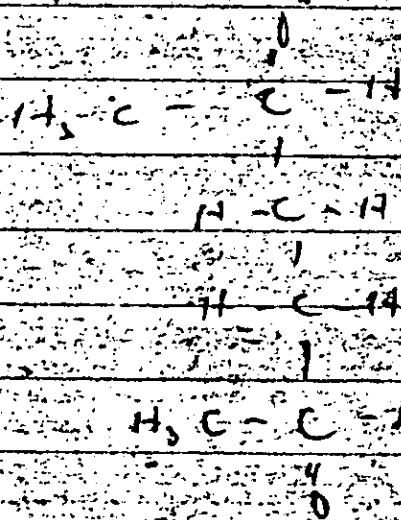 O
H₃ C - C - H
H - C - H
H - C - H
H₃ C - C -
O